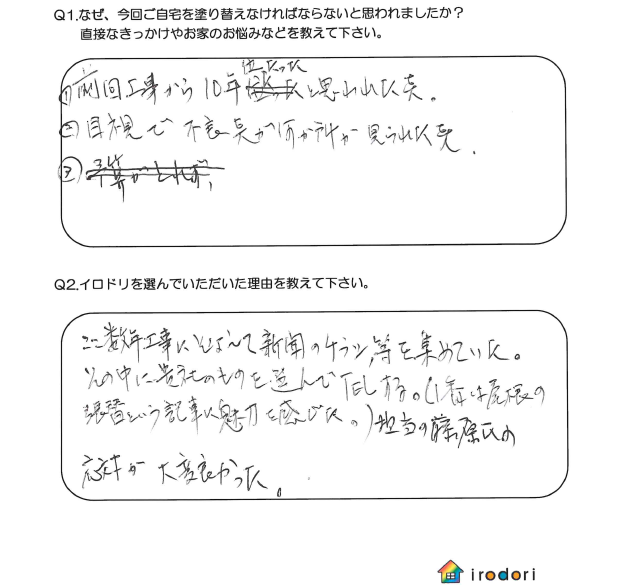 Q1.なぜ、今回ご自宅を塗り替えなければならないと思われましたか？
直接なきっかけやお家のお悩みなどを教えて下さい。
位たった
①前回工事から10年 と思われた為。
②目視で不良点が何か所か見られた為.
③予算がとれが,
Q2.イロドリを選んでいただいた理由を教えて下さい。
ここ数年工事にそなえて新聞のチラシ,等を集めていた。
その中に貴社のものを選んでTELする。(1番は屋根の
張替という記事に魅力を感じた。)担当の藤原氏の
応対が大変良かった。
irodori